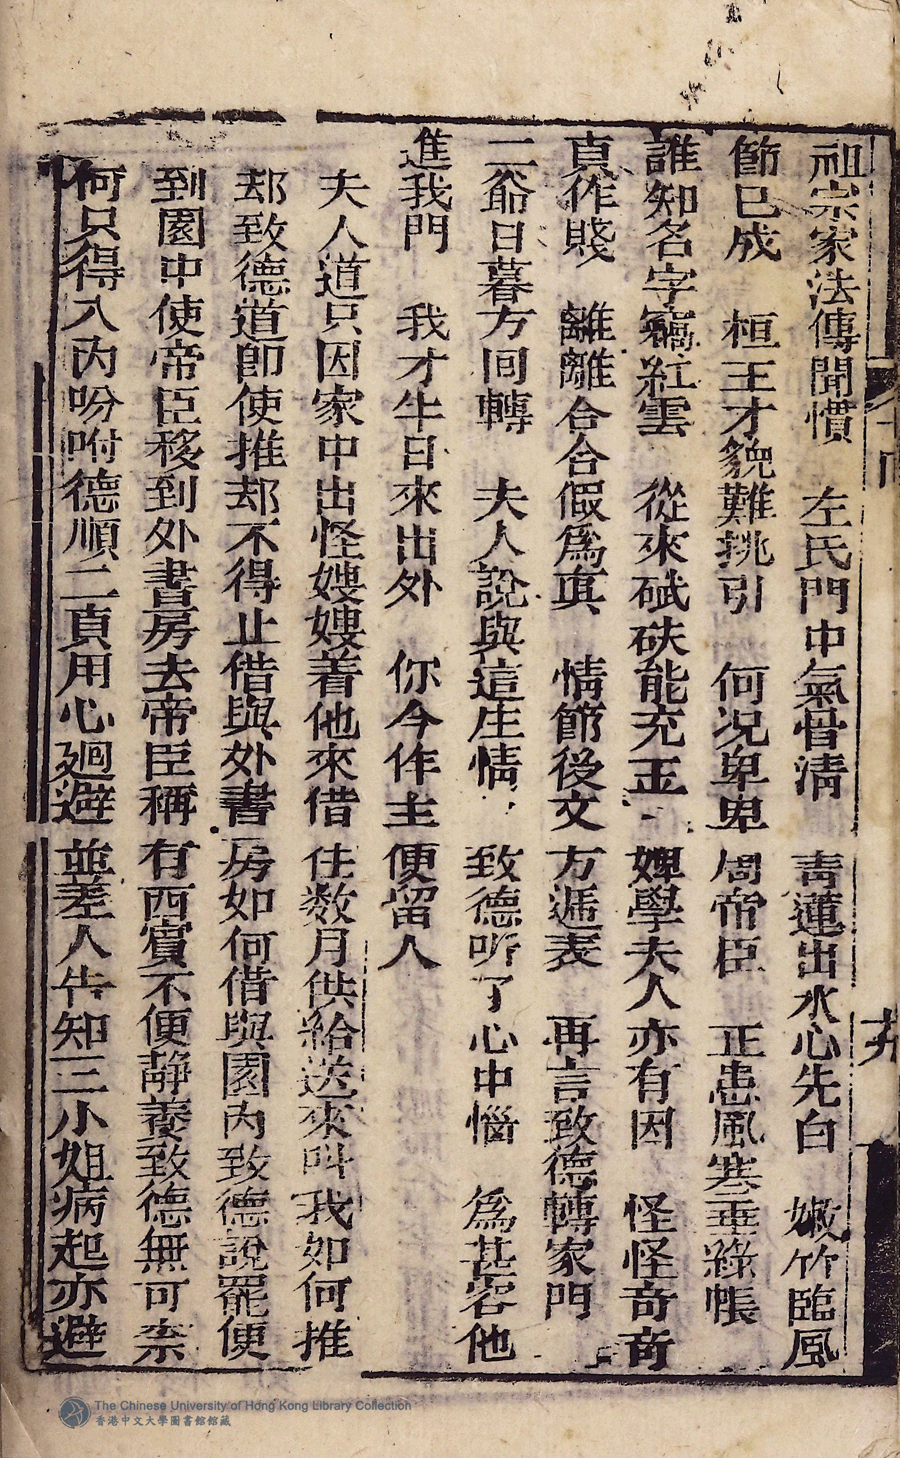 祖宗家法傳聞慣　左氏門中氣骨清　青蓮出水心先白　嫩竹臨風
節已成　桓王才貌難挑引　何况卑卑周帝臣　正患風寒垂綠帳
誰知名字竊紅雲　從來碔砆能充玉　婢學夫人亦有因　怪怪奇奇
真作賤　離離合合假爲真　情節後文方遞表　再言致德轉家門
二爺日暮方回轉　夫人說與這庄情　致德听了心中惱　爲甚容他
進我門　我才半日來出外　你今作主便留人
夫人道只因家中出怪嫂嫂着他來借住数月供給送來叫我如何推
却致德道即使推却不得止借與外書房如何借與園内致德說罷便
到園中使帝臣移到外書房去帝臣稱有西賓不便靜養致德無可奈
何只得入内吩咐德順二真用心廻避並差人告知三小姐病起亦避
The Chinese University of Hong Kong Library Collection
香港中文大學圖書館館藏